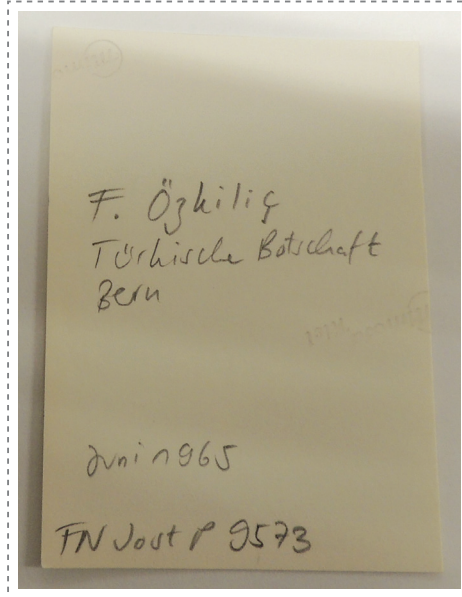 F. Özkiliç
Türkische Botschaft
Bern
Juni 1965
FN Jost P 9573